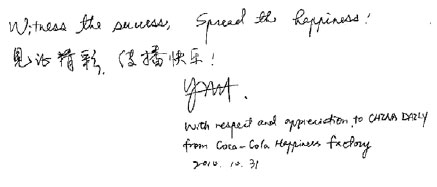 Witness the success, Spread the happiness!
见证精彩, 传播快乐!
With respect and appreciation, to CHINA DAILY
from Coca-Cola Happiness factory
2010. 10. 31